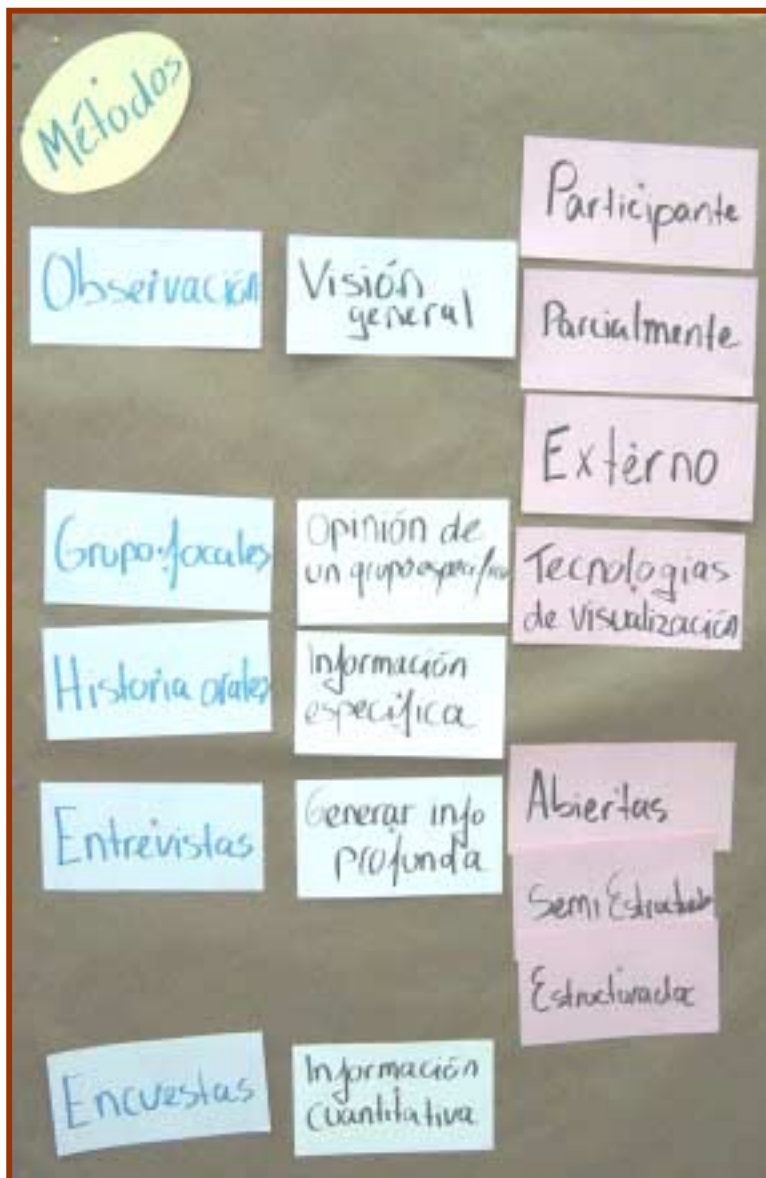 Métodos
Observación
Visión
general
Participante
Parcialmente
Externo
Grupo focales
Opinión de
un grupo especifico
Tecnologias
de visualización
Historia orales
Información
especifica
Entrevistas
Generar info
profunda
Abiertas
Semi Estructurada
Estructurada
Encuestas
Información
cuantitativa